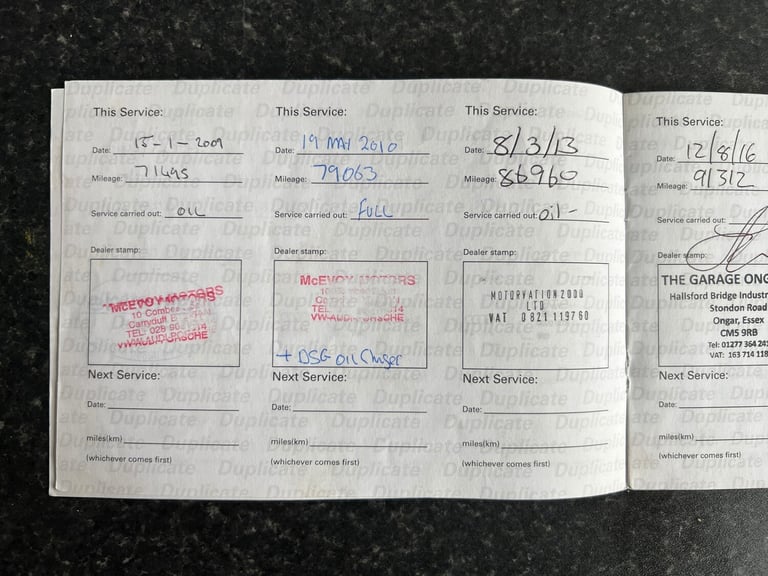 This Service:
Date: 15-1-2009
Mileage: 71495
Service carried out: OIL
Dealer stamp:
McEVOY MOTORS
10 Comber
Carryduff
TEL: 028 90 14
VW-AUDI-PORSCHE
Next Service:
Date:
miles(km)
(whichever comes first)
This Service:
Date: 19 MAY 2010
Mileage: 79063
Service carried out: FULL
Dealer stamp:
McEVOY MOTORS
10
TEL
VW-AUDI-PORSCHE
+ DSG OIL Change
Next Service:
Date:
miles(km)
(whichever comes first)
This Service:
Date: 8/3/13
Mileage: 86960
Service carried out: oil-
Dealer stamp:
MOTORVATION 2000
LTD
VAT 0821 119760
Next Service:
Date:
miles(km)
(whichever comes first)
This Service:
Date: 12/8/16
Mileage: 91312
Service carried out:
Dealer stamp:
THE GARAGE ONG
Hallsford Bridge Industr
Stondon Road
Ongar, Essex
CM5 9RB
Tel: 01277 364 24
VAT: 163 714 118
Next Service:
Date:
miles(km)
(whichever comes first)
Duplicate